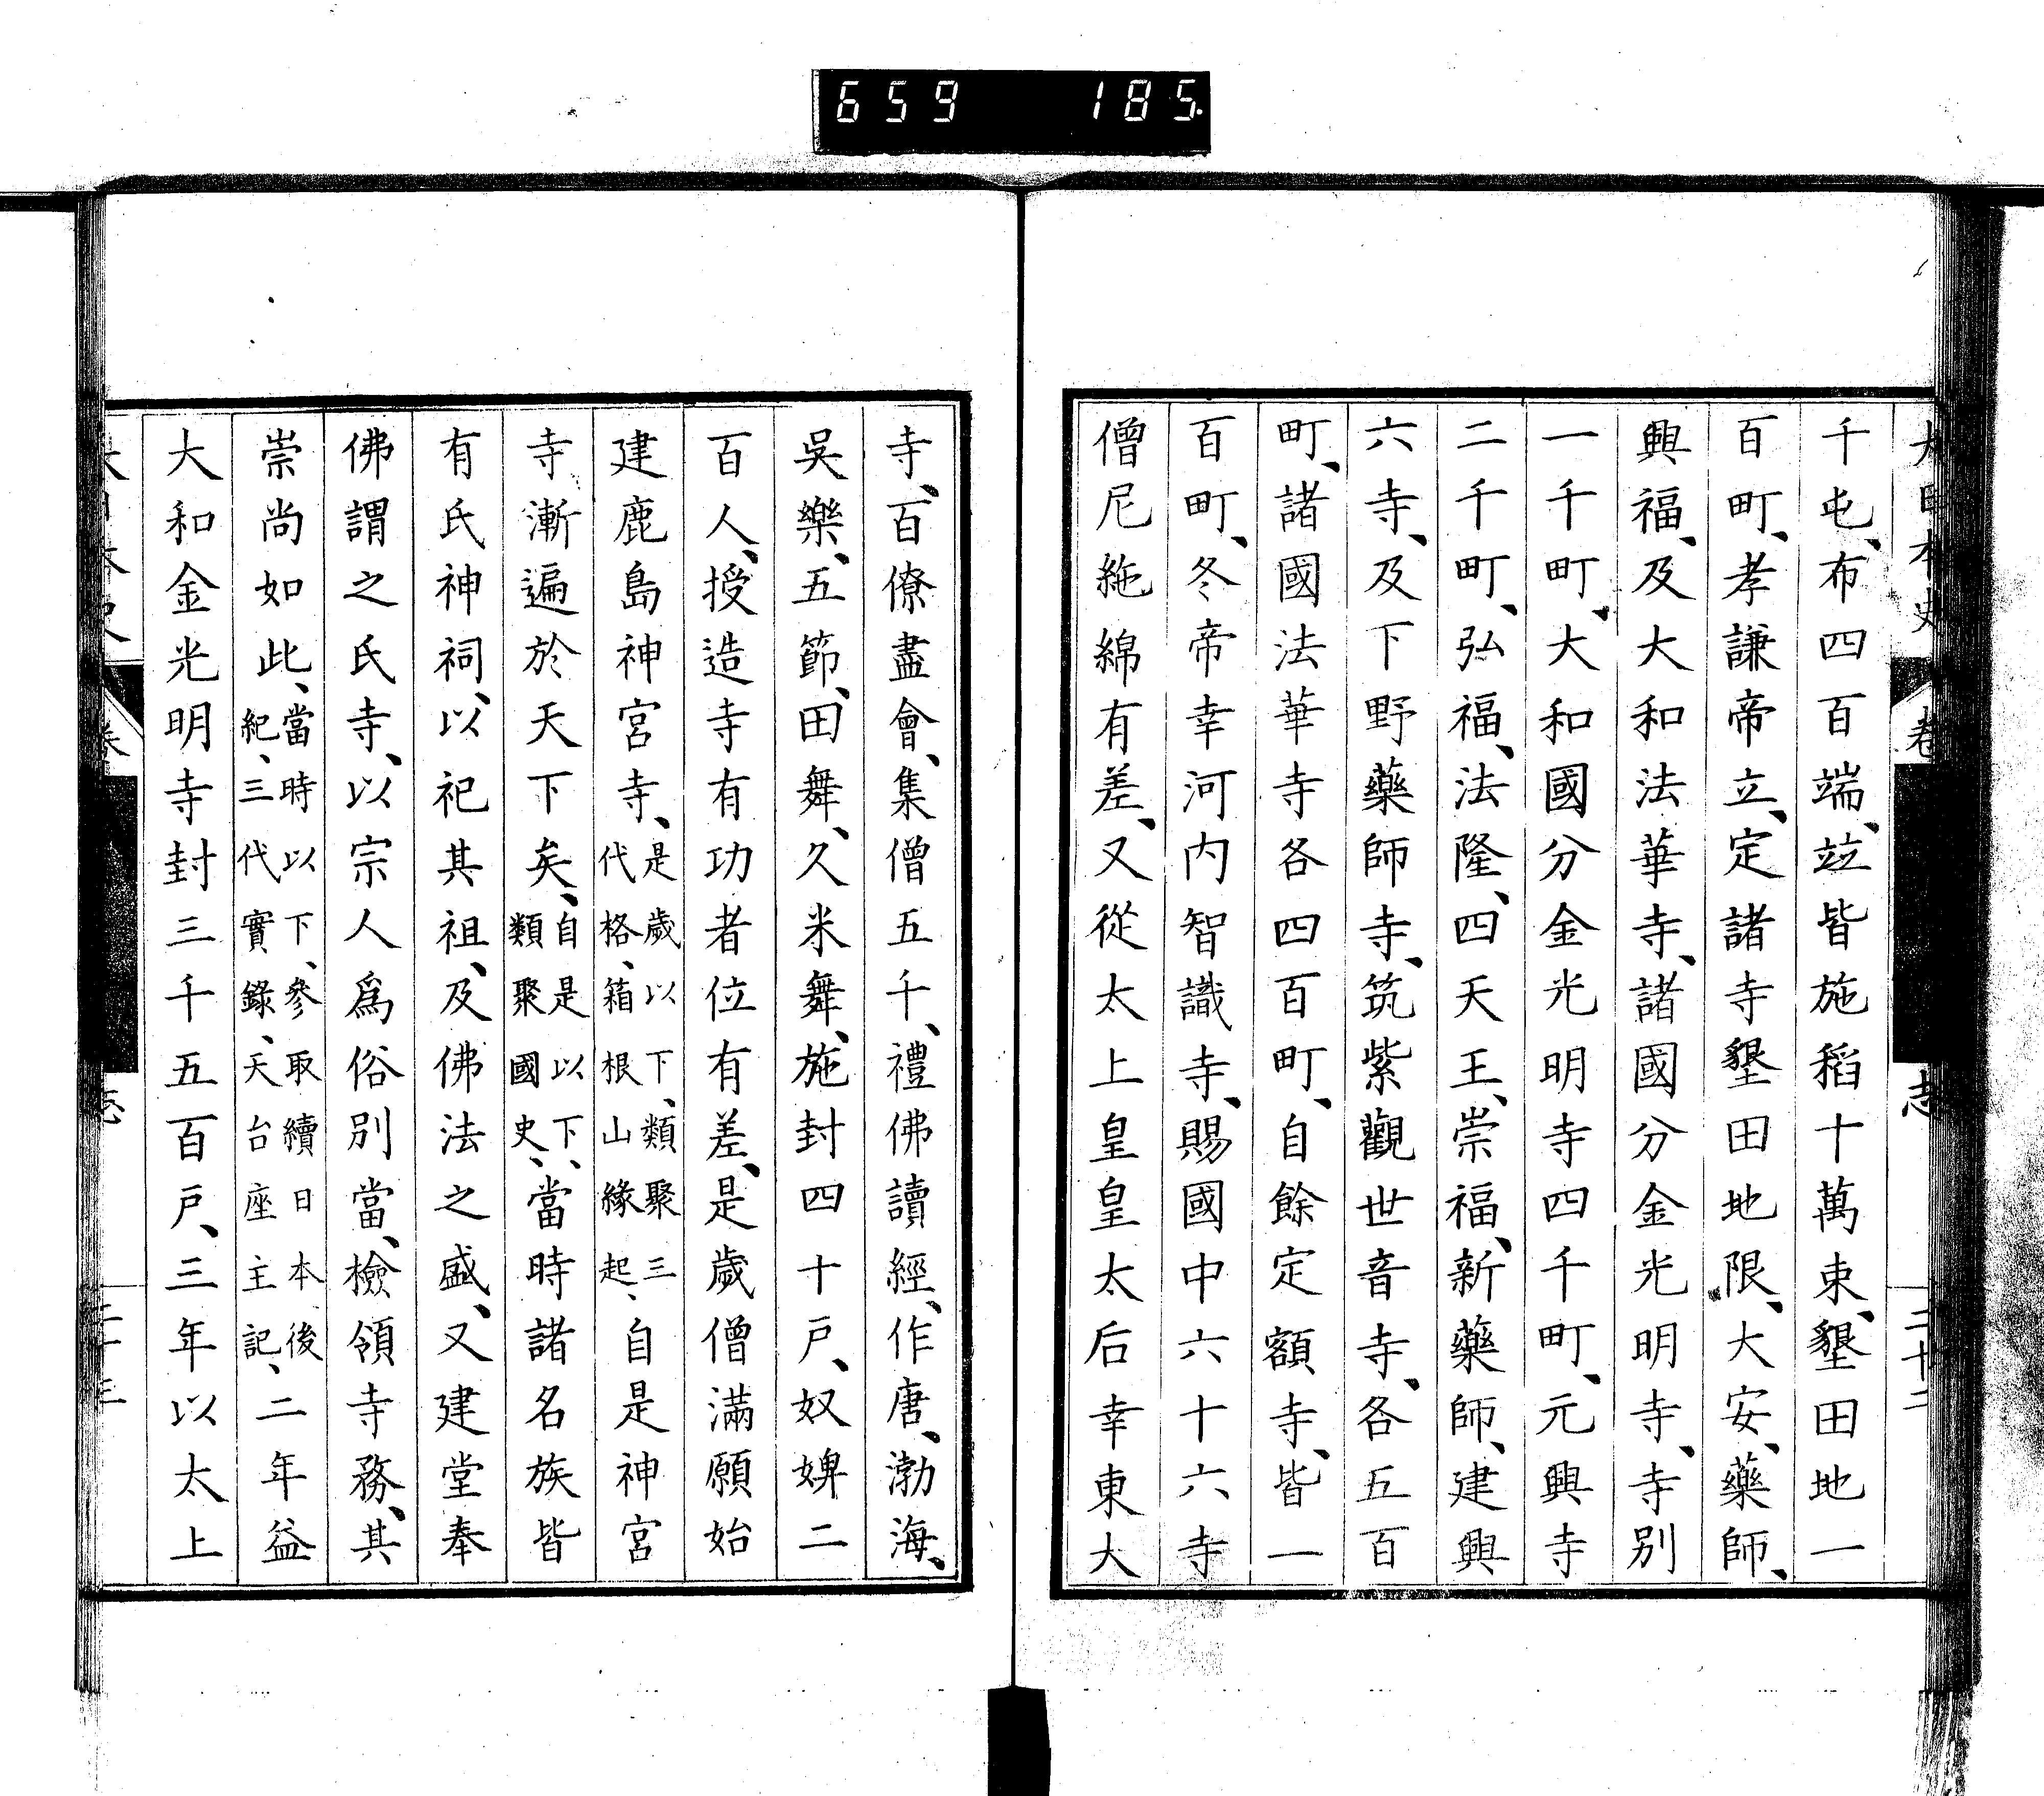 659 185
千屯、布四百端、竝皆施稻十萬束、墾田地一
百町、孝謙帝立、定諸寺墾田地限、大安、藥師、
興福、及大和法華寺、諸國分金光明寺、寺別
一千町、大和國分金光明寺四千町、元興寺
二千町、弘福、法隆、四天王、崇福、新藥師、建興
六寺、及下野藥師寺、筑紫觀世音寺、各五百
町、諸國法華寺各四百町、自餘定額寺、皆一
百町、冬帝幸河内智識寺、賜國中六十六寺
僧尼絁綿有差、又從太上皇皇太后幸東大
寺、百僚盡會、集僧五千、禮佛讀經、作唐、渤海、
吳樂、五節、田舞、久米舞、施封四十戸、奴婢二
百人、授造寺有功者位有差、是歲僧滿願始
建鹿島神宮寺、是歲以下、類聚三代格、箱根山緣起、自是神宮
寺漸遍於天下矣、自是以下、類聚國史、當時諸名族皆
有氏神祠、以祀其祖、及佛法之盛、又建堂奉
佛謂之氏寺、以宗人爲俗別當、檢領寺務、其
崇尚如此、當時以下、參取續日本後紀、三代實錄、天台座主記、二年益
大和金光明寺封三千五百戸、三年以太上